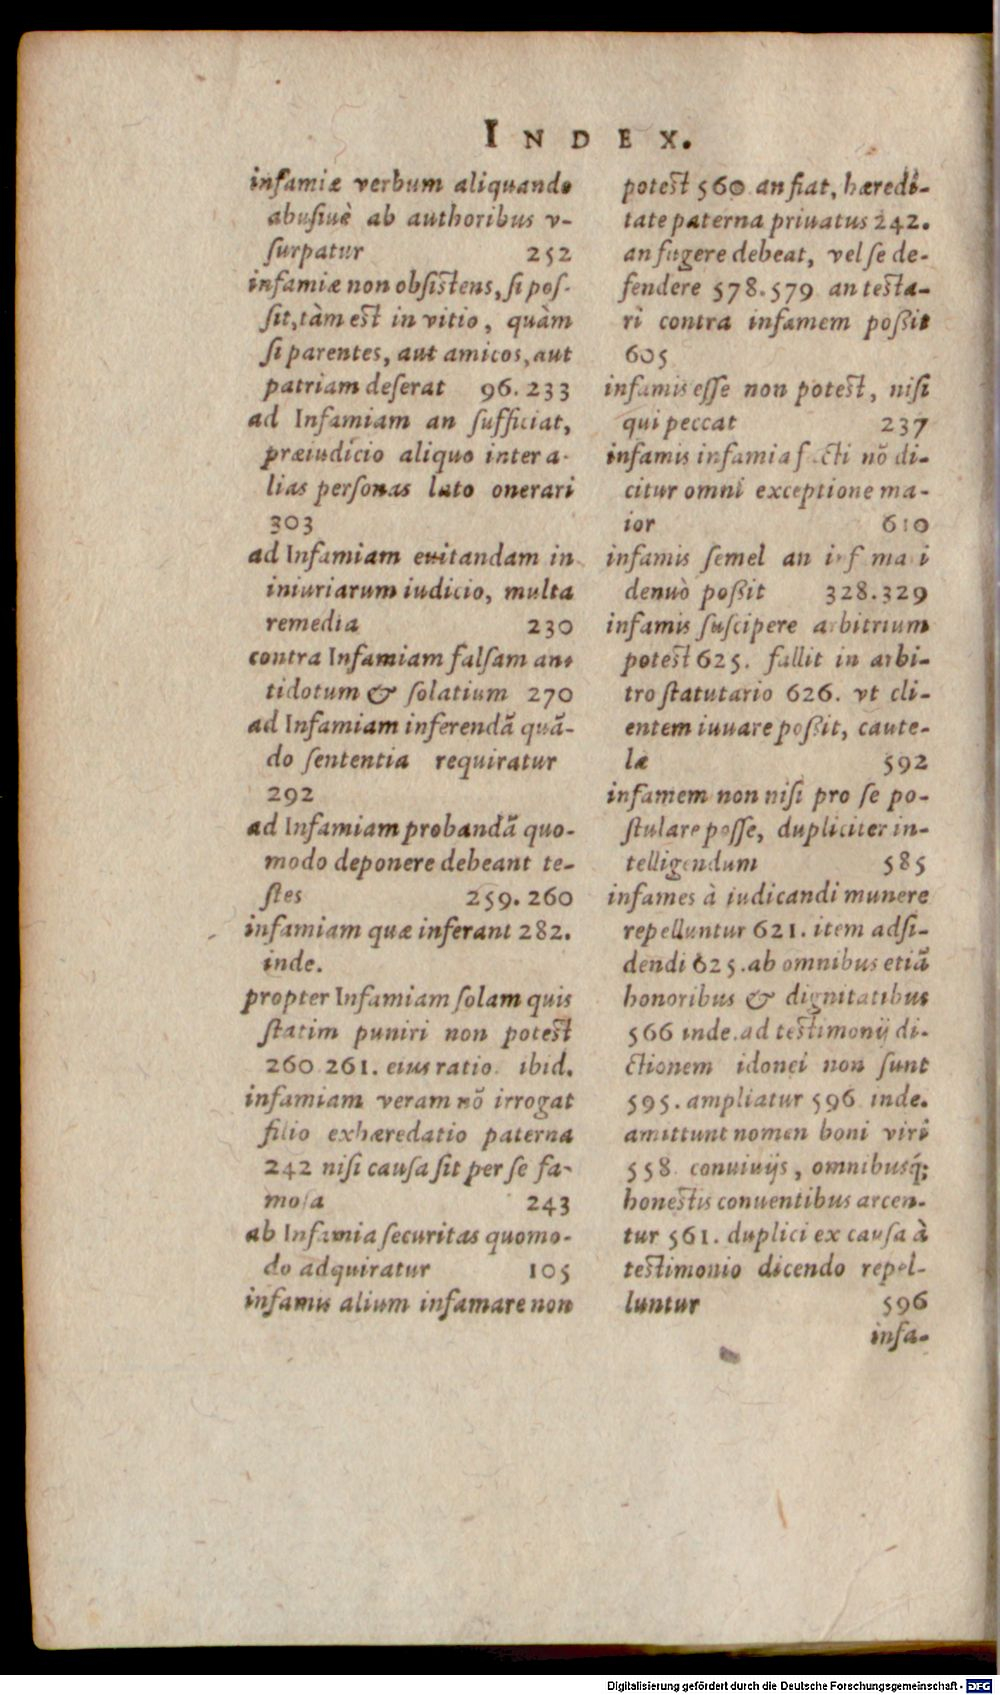 INDEX.
infamiæ verbum aliquando
abusiuè ab authoribus v-
surpatur 252
infamiæ non obsistens, si pos-
sit, tàm est in vitio, quàm
si parentes, aut amicos, aut
patriam deserat 96. 233
ad Infamiam an sufficiat,
præiudicio aliquo inter a-
lias personas lato onerari
303
ad Infamiam euitandam in
iniuriarum iudicio, multa
remedia 230
contra Infamiam falsam an-
tidotum & solatium 270
ad Infamiam inferendã quã-
do sententia requiratur
292
ad Infamiam probandã quo-
modo deponere debeant te-
stes 259. 260
infamiam quæ inferant 282.
inde.
propter Infamiam solam quis
statim puniri non potest
260 261. eius ratio. ibid.
infamiam veram nõ irrogat
filio exhæredatio paterna
242 nisi causa sit per se fa-
mosa 243
ab Infamia securitas quomo-
do adquiratur 105
infamis alium infamare non
potest 560 an fiat, hæredi-
tate paterna priuatus 242.
an fugere debeat, vel se de-
fendere 578. 579 an testa-
ri contra infamem possit
605
infamis esse non potest, nisi
qui peccat 237
infamis infamia facti nõ di-
citur omni exceptione ma-
ior 610
infamis semel an infamari
denuò possit 328. 329
infamis suscipere arbitrium
potest 625. fallit in arbi-
tro statutario 626. vt cli-
entem iuuare possit, caute-
læ 592
infamem non nisi pro se po-
stulare posse, dupliciter in-
telligendum 585
infames à iudicandi munere
repelluntur 621. item adsi-
dendi 625. ab omnibus etiã
honoribus & dignitatibus
566 inde. ad testimonij di-
ctionem idonei non sunt
595. ampliatur 596 inde.
amittunt nomen boni viri
558 conuiuijs, omnibusq́;
honestis conuentibus arcen-
tur 561. duplici ex causa à
testimonio dicendo repel-
luntur 596
infa-
Digitalisierung gefördert durch die Deutsche Forschungsgemeinschaft - DFG